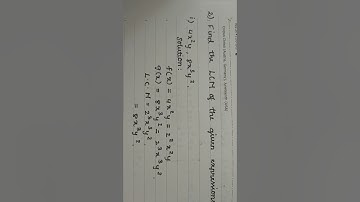 2) Find the LCM of the given expressions
i) 4x²y, 8x³y².
Solution:
f(x) = 4x²y = 2²x²y
g(x) = 8x³y² = 2³x³y²
L.C.M = 2³x³y²
= 8x³y².